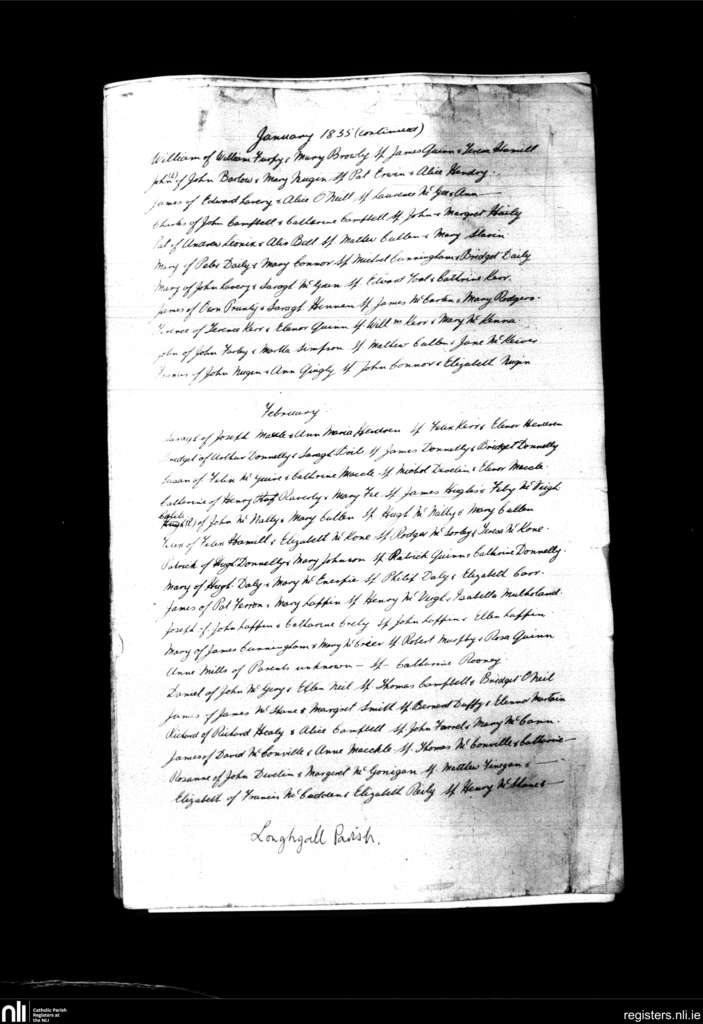 January 1835 (continued)
William of William Furfy & Mary Browly Sp James Quinn & Teresa Hamill
John (?) of John Barlow & Mary Nugen Sp Pat Erwin & Alice Hendry.
James of Edward Lavery & Alice O'Neill Sp Laurence McGee & Ann —
Charles of John Campbell & Catharine Campbell Sp John & Margret Haily
Pat of Andrew & Alice Bell Sp Mathew Cullen & Mary Slavin
Mary of Peter Daily & Mary Connor Sp Michael Cunningham & Bridget Daily
Mary of John Lavery & Saragh McGuen Sp Edward & Cathrine Kerr.
James of Own Prunty & Saragh Hennen Sp James McCorten & Mary Rodgers
Terence of Terence Kerr & Elenor Quinn Sp Willm Kerr & Mary McKenna
John of John Farley & Martha Simpson Sp Mathew Cullen & Jane McKeever
of John Nugen & Ann Gingly Sp John Connor & Elizabeth Nugin
February
Saragh of Joseph Mackle & Ann Maria Hendren Sp Felix Kerr & Elenor Hendren
Bridget of Arthur Donnelly & Saragh Sp James Donnelly & Bridget Donnelly
Susan of Felix McGuire & Cathrine Mackle Sp Michael Devlin & Elenor Mackle
Catherine of Henry Raverly & Mary Sp James Hughes & Feby McVeigh
Hugh (?) of John McNally & Mary Cullen Sp Hugh McNally & Mary Cullen
Felix of Felix Hamill & Elizabeth McKone Sp Rodger McSorley & Teresa McKone.
Patrick of Hugh Donnelly & Mary Johnson Sp Patrick Quinn & Cathrine Donnelly.
Mary of Hugh Daly & Mary Sp Philip Daly & Elizabeth Corr.
James of Pat Ferron & Mary Laffin Sp Henry McVeigh & Isabella Mulholand
Joseph of John Laffin & Catharine Sp John Laffin & Ellen Laffin
Mary of James Cunningham & Mary McCreer Sp Robert Murphy & Rosa Quinn
Anne Mills of Parents unknown — Sp Catherine Rooney.
Daniel of John McGery & Ellen Neil Sp Thomas Campbell & Bridget O'Neil
James of James McShane & Margret Smith Sp Bernard Duffy & Elenor Martain
Richard of Richard Healy & Alice Campbell Sp John Farrel & Mary McCann.
James of David McConville & Anne Mackle Sp Thomas McConville & Catherine —
Rosanne of John Devlin & Margaret McGonigan Sp Matthew Finegan & —
Elizabeth of Francis McCadden & Elizabeth Reily Sp Henry McShane & —
Loughgall Parish.
nli
Catholic Parish
Registers at
the NLI
registers.nli.ie